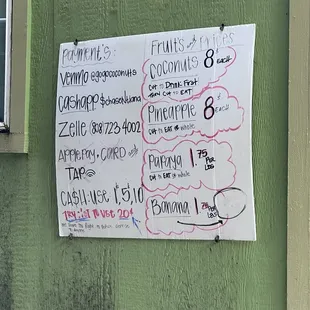 Payment's:
Venmo @gogococonuts
CashApp $chasenluana
Zelle (808) 723-4002
Apple Pay + Card
Tap
CA$H: USE 1, 5, 10
Fruits and Prices
Coconuts 8 each
Cut to Drink First
then Cut to Eat
Pineapple 8 each
Cut to Eat or whole
Papaya 1.75 Per LBS
Cut to Eat or whole
Banana 1